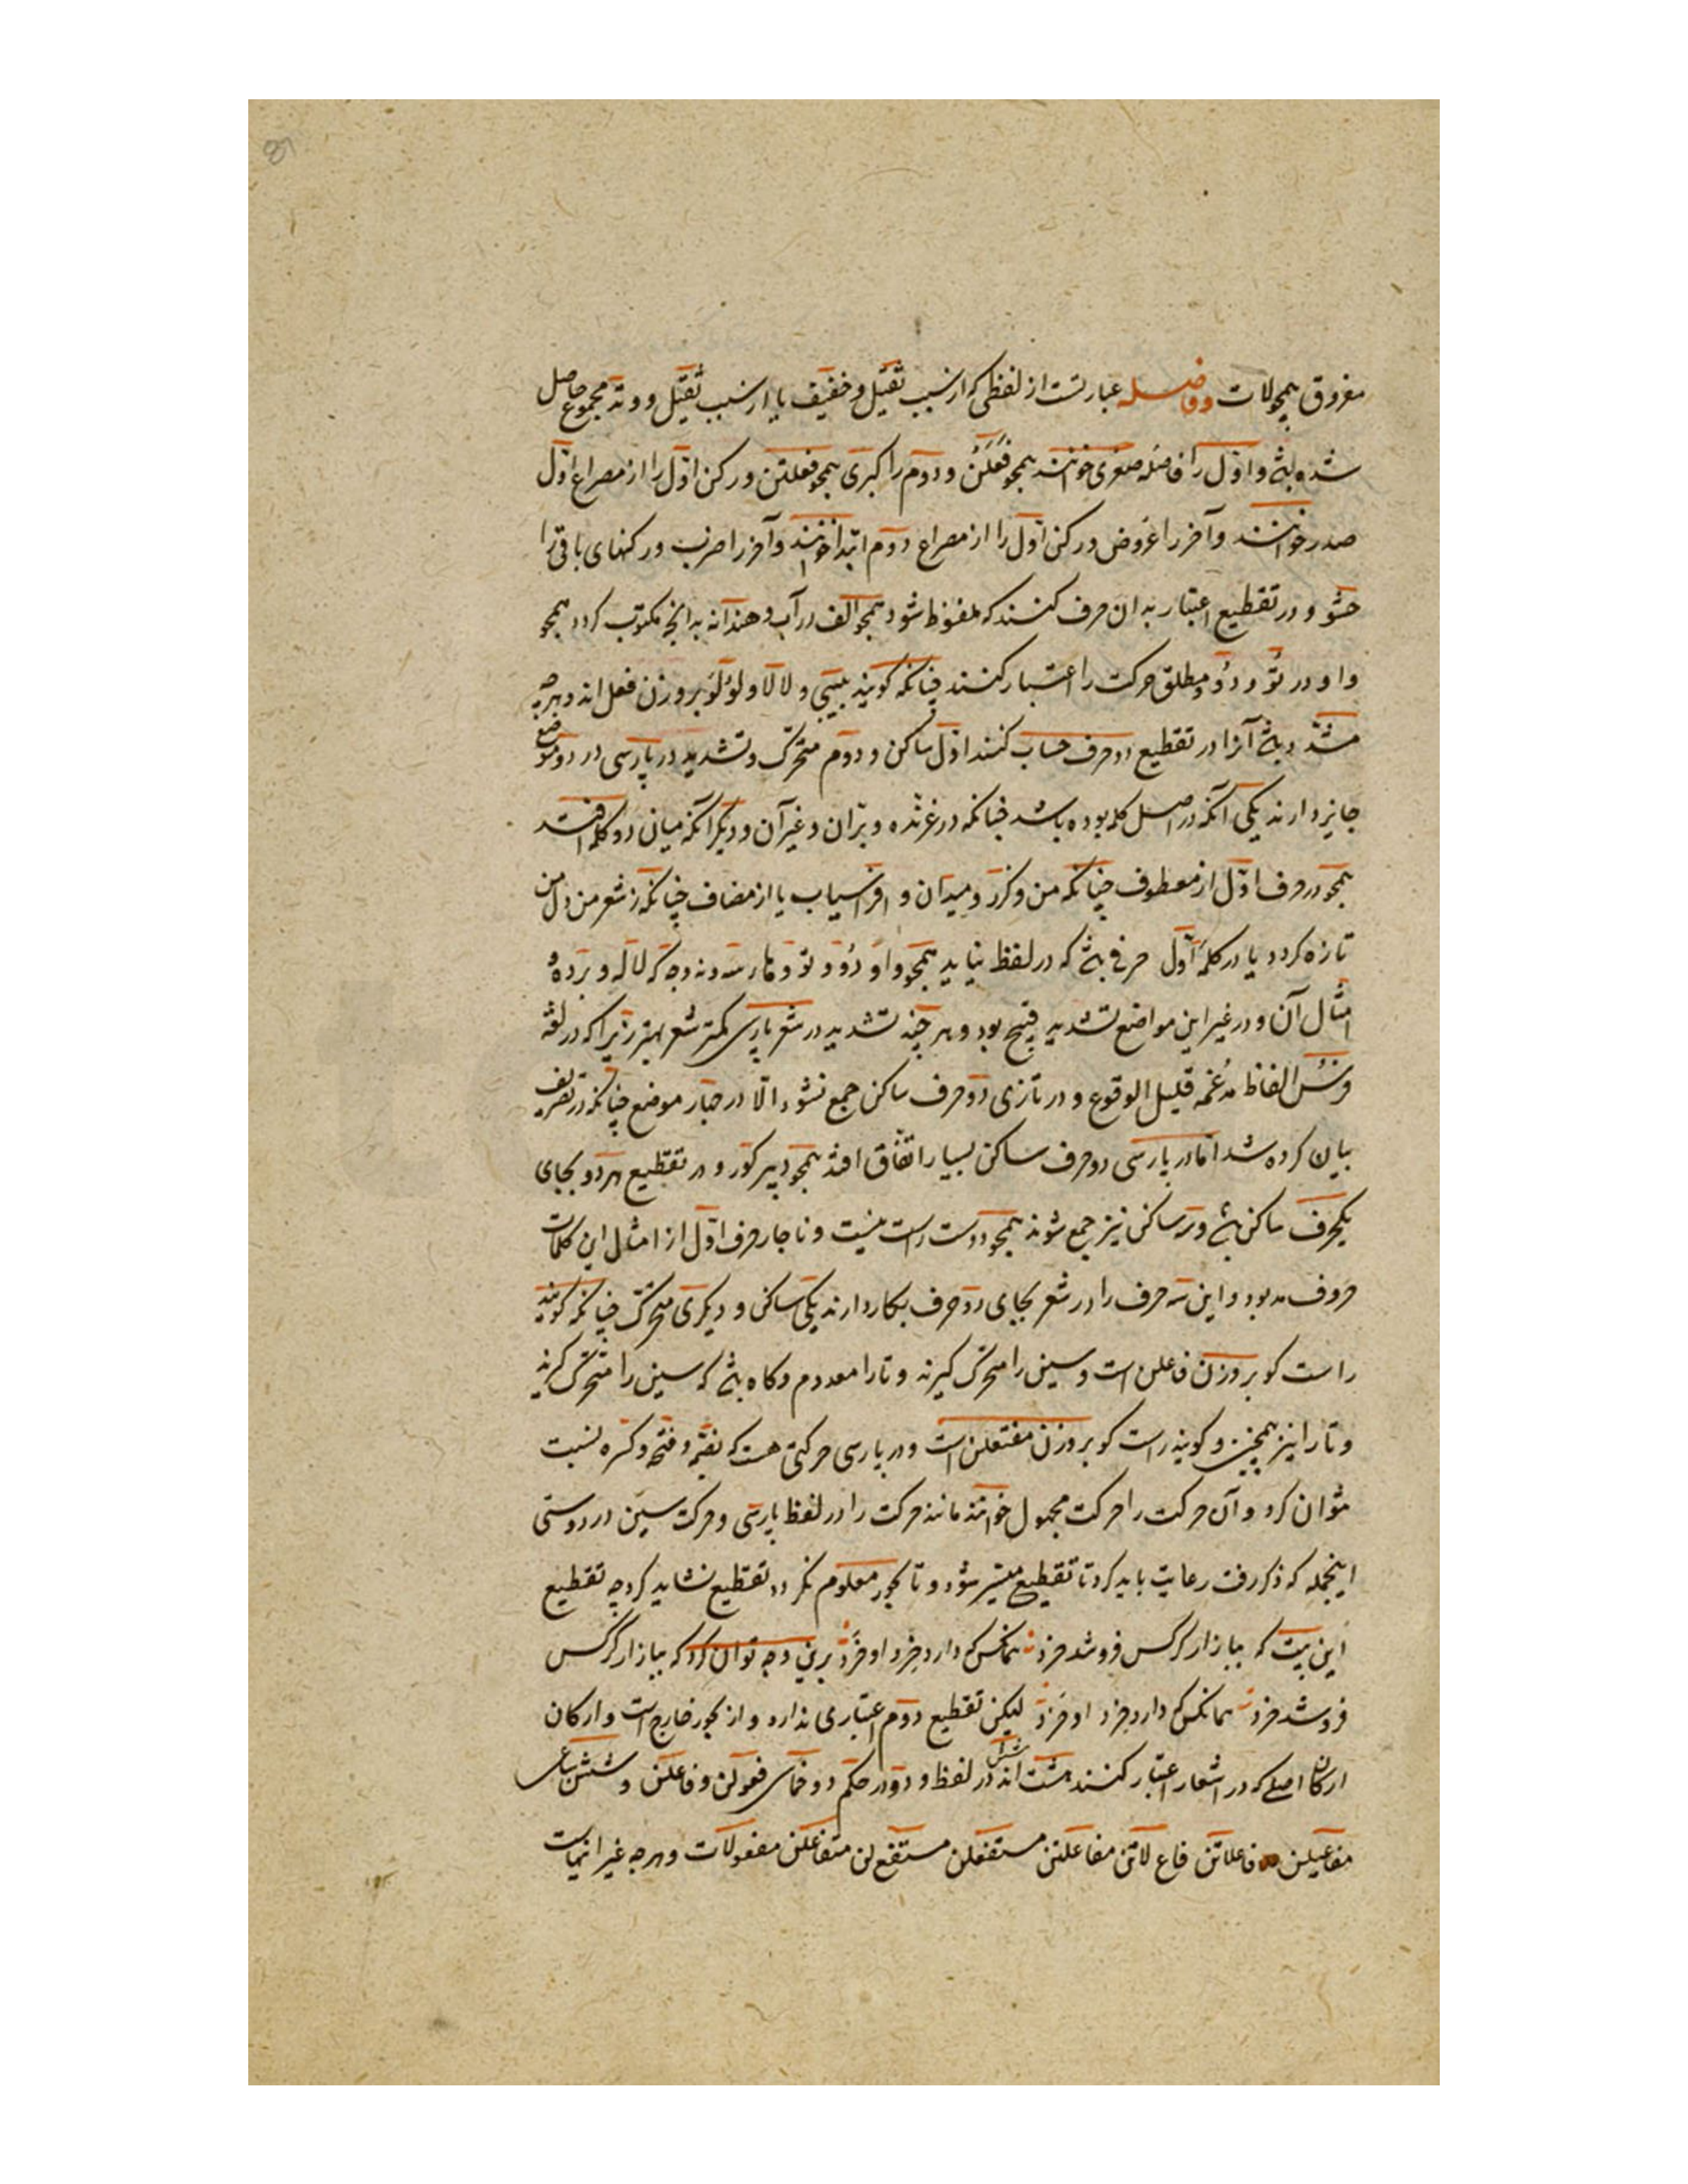 مفروق همچو لات وفاصله عبارتست از لفظی که از سبب ثقیل و خفیف یا از سبب ثقیل و وتد مجموع حاصل
شده باشد و اول را فاصله صغری خوانند همچو فَعَلَنْ و دوم را کبری همچو فعلتن و رکن اول را از مصراع اول
صدر خوانند و آخر را عروض و رکن اول را از مصراع دوم ابتدا خوانند و آخر را ضرب و رکنهای باقی را
حشو و در تقطیع اعتبار بدان حرف کنند که ملفوظ شود همچو الف در آب و هند آنه بدانچه مکتوب کردد همچو
واو در تُو و دُو و مطلق حرکت را اعتبار کنند چنانکه کویند ببینی و لالا و لولو بر وزن فعل اند و هرچه
مشدد باشد آنرا در تقطیع دو حرف حساب کنند اول ساکن و دوم متحرک و تشدید در پارسی در دو موضع
جایز دارند یکی آنکه در اصل کلمه بوده باشد چنانکه در غرنده و بران و غیر آن و دیکر آنکه میان دو کلمه افتد
همچو در حرف اول از معطوف چنانکه من و کرز و میدان و افراسیاب یا از مضاف چنانکه ز شعر من دل من
تازه کردد یا در کلمه اول حرفی باشد که در لفظ نیاید همچو واو دُو و تو و هاء سه و نه و چه که لاله و برده و
امثال آن و در غیر این مواضع تشدید قبیح بود و هر چند تشدید در شعر پارسی کمتر شعر بهتر زیرا که در لغة
فرس الفاظ مدغمه قلیل الوقوع و در تازی دو حرف ساکن جمع نشود الا در چهار موضع چنانکه در تصریف
بیان کرده شد اما در پارسی دو حرف ساکن بسیار اتفاق افتد همچو دبیر کور و در تقطیع هر دو بجای
یکحرف ساکن باشد و سه ساکن نیز جمع شوند همچو دوست راست نیست و ناچار حرف اول از امثال این کلمات
حروف مد بود و این سه حرف را در شعر بجای دو حرف بکار دارند یکی ساکن و دیکری متحرک چنانکه کویند
راست کو بر وزن فاعلن است و سین را متحرک کیرند و تا را معدوم و کاه باشد که سین را متحرک کیرند
و تا را نیز همچنین و کویند راست کو بر وزن مفتعلن است و در پارسی حرکتی هست که بضمه و فتحه و کسره نسبت
نتوان کرد و آن حرکت را حرکت مجهول خوانند مانند حرکت را در لفظ پارسی و حرکت سین در دوستی
اینجمله که ذکر رفت رعایت باید کرد تا تقطیع میسر شود و تا بحور معلوم نکردد تقطیع نشاید کرد چه تقطیع
این بیت که ببازار کرکس فروشد خرد همانکس که دارد خرد او خرد برین وجه توان کرد که ببازار کرکس
فروشد خرد همانکس که دارد خرد او خرد لیکن تقطیع دوم اعتباری ندارد و از بحور خارج است و ارکان
ارکان اصلی که در اشعار اعتبار کنند هشت اند در لفظ و دو در حکم دو خماسی فعولن و فاعلن و شش سباعی
مفاعیلن فاعلاتن فاع لاتن مفاعلتن مستفعلن مستفع لن متفاعلن مفعولات و هرچه غیر اینهاست